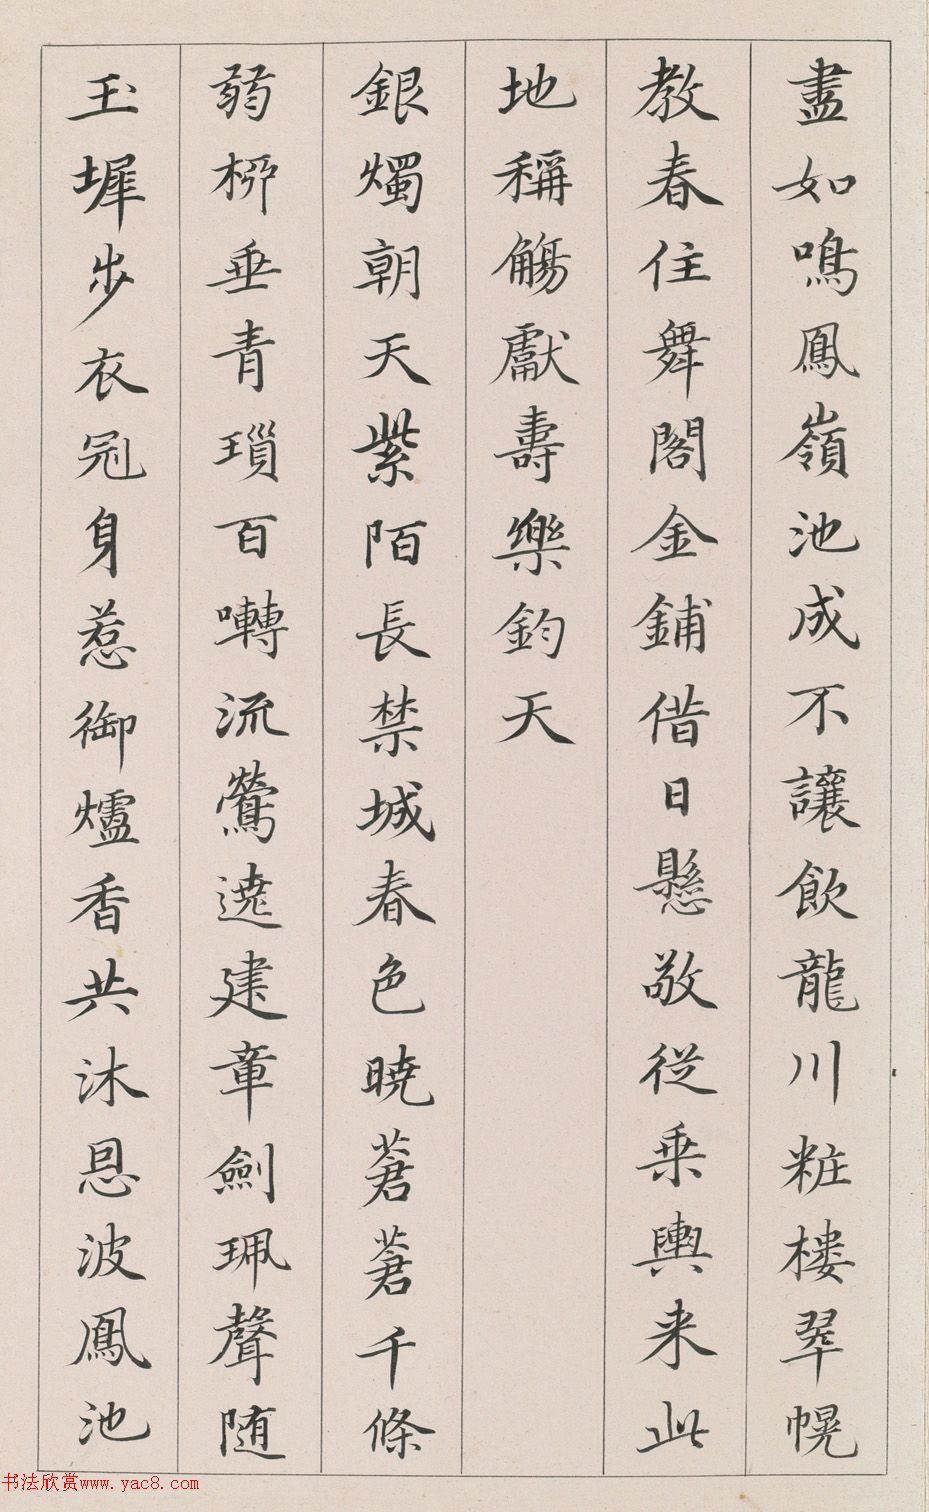 盡如鳴鳳嶺池成不讓飲龍川粧樓翠幌
教春住舞閣金鋪借日懸敬從乗輿来此
地稱觴獻壽樂鈞天
銀燭朝天紫陌長禁城春色暁蒼蒼千條
弱栁垂青瑣百囀流鶯遶建章劍珮聲随
玉墀步衣冠身惹御爐香共沐恩波鳳池
书法欣赏www.yac8.com